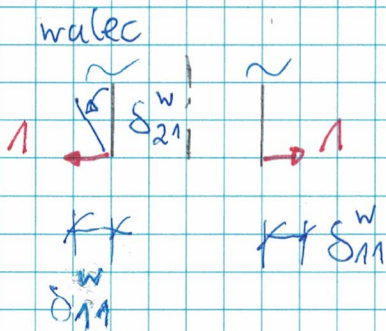 walec
1 δ₂₁ʷ 1
δ₁₁ʷ
δ₁₁ʷ